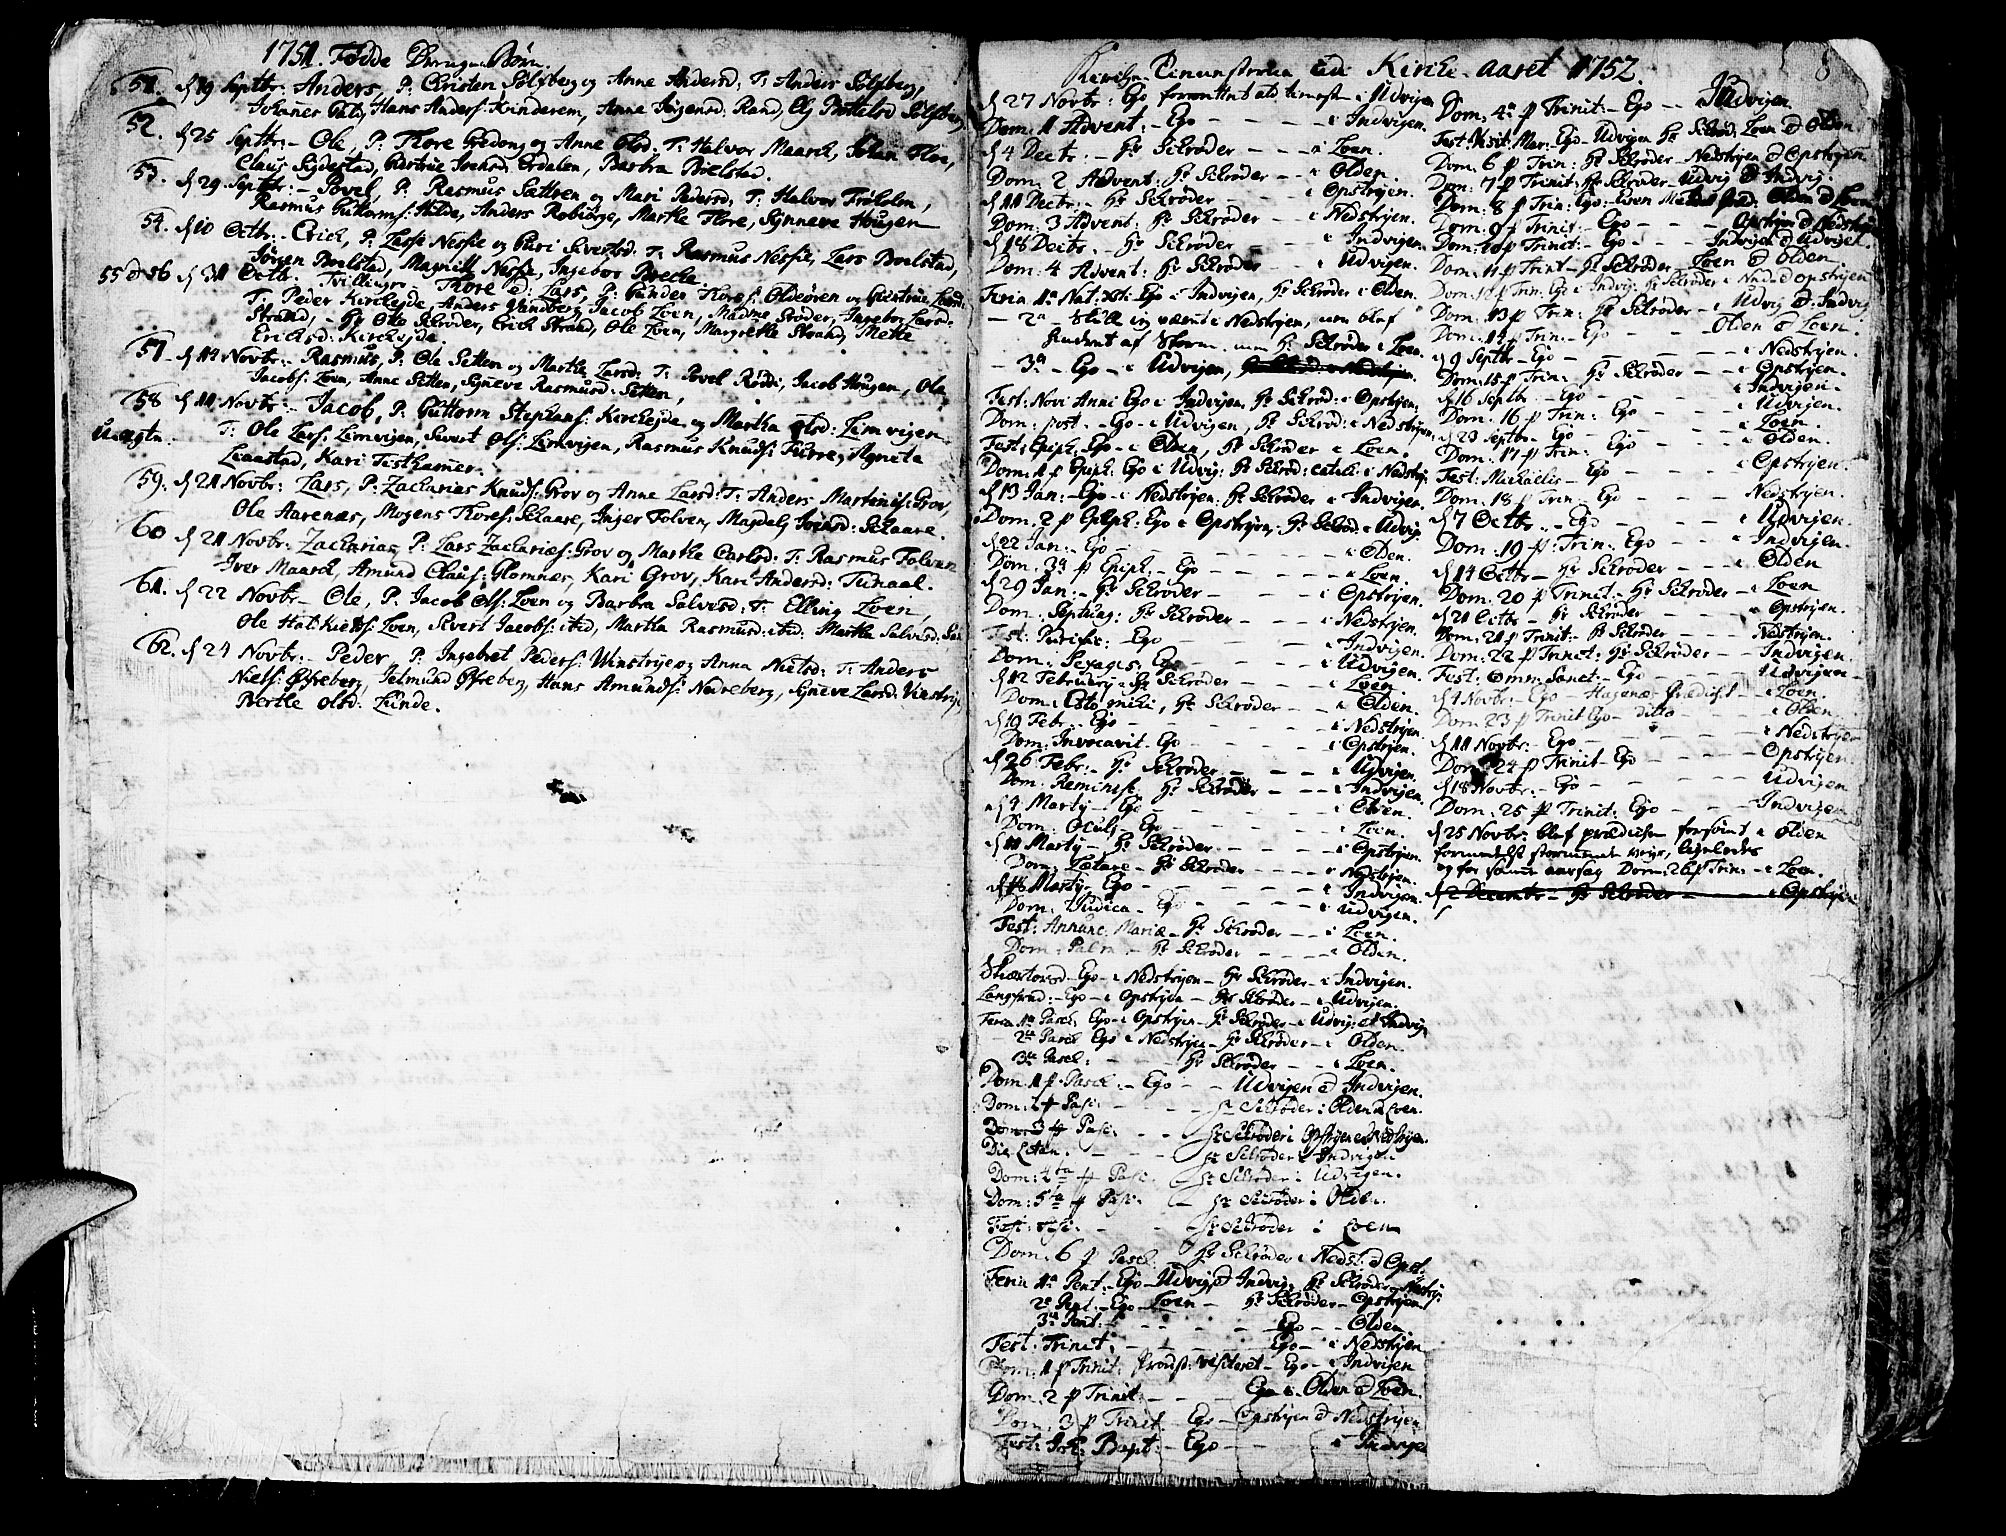 1751. Fødde Drenge Børn.
51. d 19 Septbr: Anders, P: Christen Solsberg og Anne Andersd: T: Anders Solsberg,
Johannes Hans Anders: Hinderem, Anne Jørgensd: Rand, Solsberg
52. d 25 Septbr: - Ole, P: Thore og Anne Olsd: T: Halvor Maarck, Johan Floe,
Claus Sydestad, Giertrue Erdalen, Barbra Bielstad.
53. d 29 Septbr: - Povel, P: Rasmus Sætteen og Mari Pedersd: T: Halvor Trølolm,
Rasmus Guttorms: Hilde, Anders Robiørge, Marthe Flore, Synneve Hougen
54. d 10 Octbr: Erick, P: Lasse Nesse og Guri Sivertsd: T: Rasmus Nesse, Lars Bielstad,
Jørgen Bielstad, Magnill Nesse, Ingebor Brecke.
55 & 56 d 31 Octb: Tvillinger Thore & Lars, P: Gunder Thores: Oldeøren og Giertrue
T: Peder Kirckeyde Anders Jacob Loen, Ingebor Larsd:
Strand, - Hr Ole Schrøder, Erick Strand, Ole Loen, Margrethe Strand, Mette
Ericksd: Kirckeyde.
57 d 14 Novbr: - Rasmus, P: Ole Setten og Marthe Larsd: T: Povel Røddi, Jacob Hougen, Ole
Jacobs: Loen, Anne Setten, Sÿneve Rasmusd: Setten,
58 d 14 Novbr: - Jacob, P: Guttorm Stephans: Kirckeyde og Martha Olsd: Lemvigen
Uægte. T: Ole Lars: Lemvigen, Sivert Ols: Lemvigen, Rasmus Knuds: Furre, Agnete
Leaastad, Kari Testhamer.
59. d 21 Novbr: Lars, P: Zackarias Knuds: Grov og Anne Larsd: T: Anders Martinus: Grov,
Ole Aarenæs, Mogens Thores: Schaare, Inger Folven, Magdal: Schaare.
60 d 21 Novbr: Zackarias, P: Lars Zackarias: Grov og Marthe Carlsd: T: Rasmus Folven
Iver Maarck, Amund Claus: Glomnæs, Kari Grov, Kari Andersd: Tunaal.
61. d 22 Novbr - Ole, P: Jacob Ols: Loen og Barbra Salvesd: T: Elling Loen,
Ole Loen, Sivert Jacobs: ibd, Martha Rasmusd: ibd: Martha Salvesd:
62. d 24 Novbr: - Peder P: Ingebret Peders: Winstrye og Anna Nielsd: T: Anders
Niels: Øfreberg, Jetmund Øfreberg, Hans Amunds: Nedreberg, Sÿneve Larsd: Viestrye
Berthe Olsd: Lunde.
8
udi Kirche-aaret 1752.
d 27 Novbr: Ego i Udvigen
Dom: 1 Advent: - Ego - - - i Indvigen.
d 4 Decbr: - Hr Schrøder - - - i Loen.
Dom: 2 Advent: Hr Schrøder - - - i Olden.
d 11 Decbr: - Hr Schrøder - - - i Opstrÿen.
Dom: 3 Advent: Hr Schrøder - - i Nedstrÿen.
d 18 Decbr - Hr Schrøder - - - i Indvigen
Dom: 4 Advent: Hr Schrøder - - i Udvigen.
Feria 1a Nat: Xti: Ego i Indvigen, Hr Schrøder i Olden.
- 2a - i Nedstrÿen, uden bluf
af Storm. Hr Schrøder i Loen.
- 3a - Ego - i Udvigen,
Fest: Novi Anni Ego i Indvigen, Hr Schrød: i Opstrÿen.
Dom: post - Ego - i Udvigen, Hr Schrød: i Nedstrÿen
Fest: Epiph: Ego - i Olden, Hr Schrøder i Loen.
Dom: 1 p Epiph: Ego i Udvig: Hr Schrød: i Nedstrÿ
d 13 Jan: - Ego - i Nedstrÿen: Hr Schrøder i Indvigen.
Dom: 2 p Epiph: Ego i Opstrÿen, Hr Schrød: i Udvig
d 22 Jan: - Ego - - - i Olden.
Dom: 3a p Epiph: - Ego - - - i Loen.
d 29 Jan: - Hr Schrøder - - - i Opstrÿen.
Dom: Septuag: Hr Schrøder - - i Nedstrÿen.
Fest: Purific: - Ego - - - i Indvigen.
Dom: Sexages: Ego - - - i Udvigen.
d 12 February - Hr Schrøder - - i Loen.
Dom: Esto mihi, Hr Schrøder - - i Olden.
d 19 Febr - Ego - - - i Nedstrÿen.
Dom: Invocavit - Ego - - - i Opstrÿen.
d 26 Febr: - Hr Schrøder - - - i Udvigen.
Dom: Reminisc: Hr Schrøder - - i Indvigen.
d 4 Marty - Ego - - - i Olden.
Dom: Oculi Ego - - - i Loen.
d 11 Marty - Hr Schrøder - - - i Opstrÿen.
Dom: Lætare - Hr Schrøder - - i Nedstrÿen.
d 18 Marty - Ego - - - i Indvigen.
Dom: Judica - Ego - - - i Udvigen.
Fest: Annunc: Mariæ - Hr Schrøder - - i Loen.
Dom: Palm - Hr Schrøder - - i Olden.
Skiærtorsd - Ego - i Nedstrÿen - Hr Schrøder - i Indvigen.
Langfred: - Ego - i Opstrÿen - Hr Schrøder - i Udvigen.
Feria 1a Pasch: Ego - i Opstrÿen - Hr Schrøder - i Udvig: et Indvig
2da Pasch Ego i Nedstrÿen - Hr Schrøder - i Olden.
3tia Pasch: - - Hr Schrøder - i Loen.
Dom: 1 p Pasch: - Ego - - Udvigen & Indvigen.
Dom: 2 p Pasc: - - - Hr Schrøder i Olden & Loen.
Dom: 3 p Pasc: - - Hr Schrøder i Opstrÿen & Nedstrÿen.
Die - - - Hr Schrøder i Indvigen
Dom: 4ta p Pasc: Hr Schrøder i Udvigen.
Dom: 5ta p Pasc: Hr Schrøder i Olden.
Fest: - - Hr Schrøder i Loen
Dom: 6 p Pasch: Hr Schrøder i Nedst: & Opst:
Feria 1a Pent: - Ego - Udvig & Indvig, Hr Schrøder - Nedstrÿ:
2a Pent: - Ego - Loen - Hr Schrøder - Opstrÿen
3tia Pent: - - - Ego - - Olden
Fest: Trinit: - - - Ego - - i Nedstrÿen
Dom: 1 p Trinit: Provst: visiteret - Ego - i Indvigen
Dom: 2 p Trinit: - - Ego i Olden & Loen
Dom: 3 p Trinit: Ego - Opstrÿen & Nedstrÿen
Fest: Joh: Bapt: - Ego - - i Indvige
Dom: 4a p Trinit: - Ego - - i Udvigen
Fest: Visit: Mar: Ego - Udvigen Hr Schrød: Loen & Olden
Dom: 6 p Trin: Hr Schrøder - Nedstrÿen & Opstrÿen
Dom: 7 p Trinit: Hr Schrøder - Udvig & Indvig.
Dom: 8 p Trin: Ego: Olden & Loen
Dom: 9 p Trinit: - Ego - - Opstrÿen & Nedstrÿen
Dom: 10 p Trinit: - Ego - - Indvigen & Udvigen.
Dom: 11 p Trinit - Hr Schrøder - Loen & Olden
Dom: 12 p Trin: Ego i Indvig: Hr Schrøder i Neds & Opstrÿen
Dom: 13 p Trin: Hr Schrøder - i Udvig & Indvig
Dom: 14 p Trin: - Ego - - Olden & Loen.
d 9 Septbr - Ego - - - i Nedstrÿen.
Dom: 15 p Trin: Hr Schrøder - - i Opstrÿen.
d 16 Septbr - Ego - - - i Indvigen.
Dom: 16 p Trin: Ego - - - i Udvigen.
d 23 Septbr - Ego - - - i Loen.
Dom: 17 p Trin: Ego - - - i Olden.
Fest: Michaëlis - Ego - - - Opstrÿen.
Dom: 18 p Trin - Ego - - - Nedstrÿen.
d 7 Octbr. - Ego - - - i Udvigen
Dom: 19 p: Trin: Ego - - - i Indvigen.
d 14 Octbr - Hr Schrøder - - - i Olden
Dom: 20 p Trinit: - Hr Schrøder - i Loen
d 21 Octbr - Hr Schrøder - - - i Opstrÿen.
Dom: 21 p Trinit: - Hr Schrøder - - Nedstrÿen.
Dom: 22 p Trinit: Hr Schrøder - - Indvigen.
Fest: Omn: Sanct: - Ego - - - Udvigen -
d 4 Novbr: - Ego - Hagenæs - i Loen.
Dom: 23 p Trinit Ego - ditto - - i Olden
d 11 Novbr: - Ego - - - i Nedstrÿen
Dom: 24 p Trinit - Ego - - Opstrÿen.
d 18 Novbr: - Ego - - - Udvigen
Dom: 25 p Trinit: - Ego - - - Indvigen
d 25 Novbr: blef prædicken forsømt i Olden
formedelst stormende veyr, ligeledes
og for samme aarsag Dom: 26 p Trin: - i Loen.
d 2 Decembr - Hr Schrøder - - - i Opstrÿen